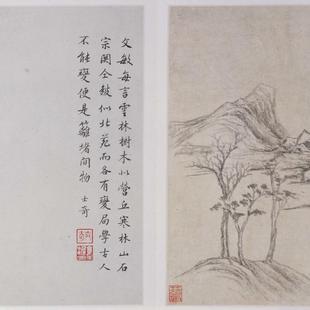 文敏每言雲林樹木似營丘寒林山石
宗關仝皴似北苑而各有變局學古人
不能變便是籬堵間物 士奇